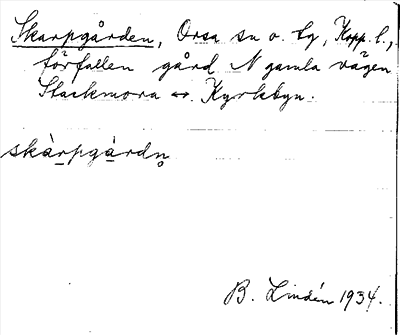 Skarpgården, Orsa sn o. tg, Kopp. l.,
förfallen gård N gamla vägen
Stackmora ↔ Kyrkbyn.
skàrpgàrdn̥
B. Lindén 1934.